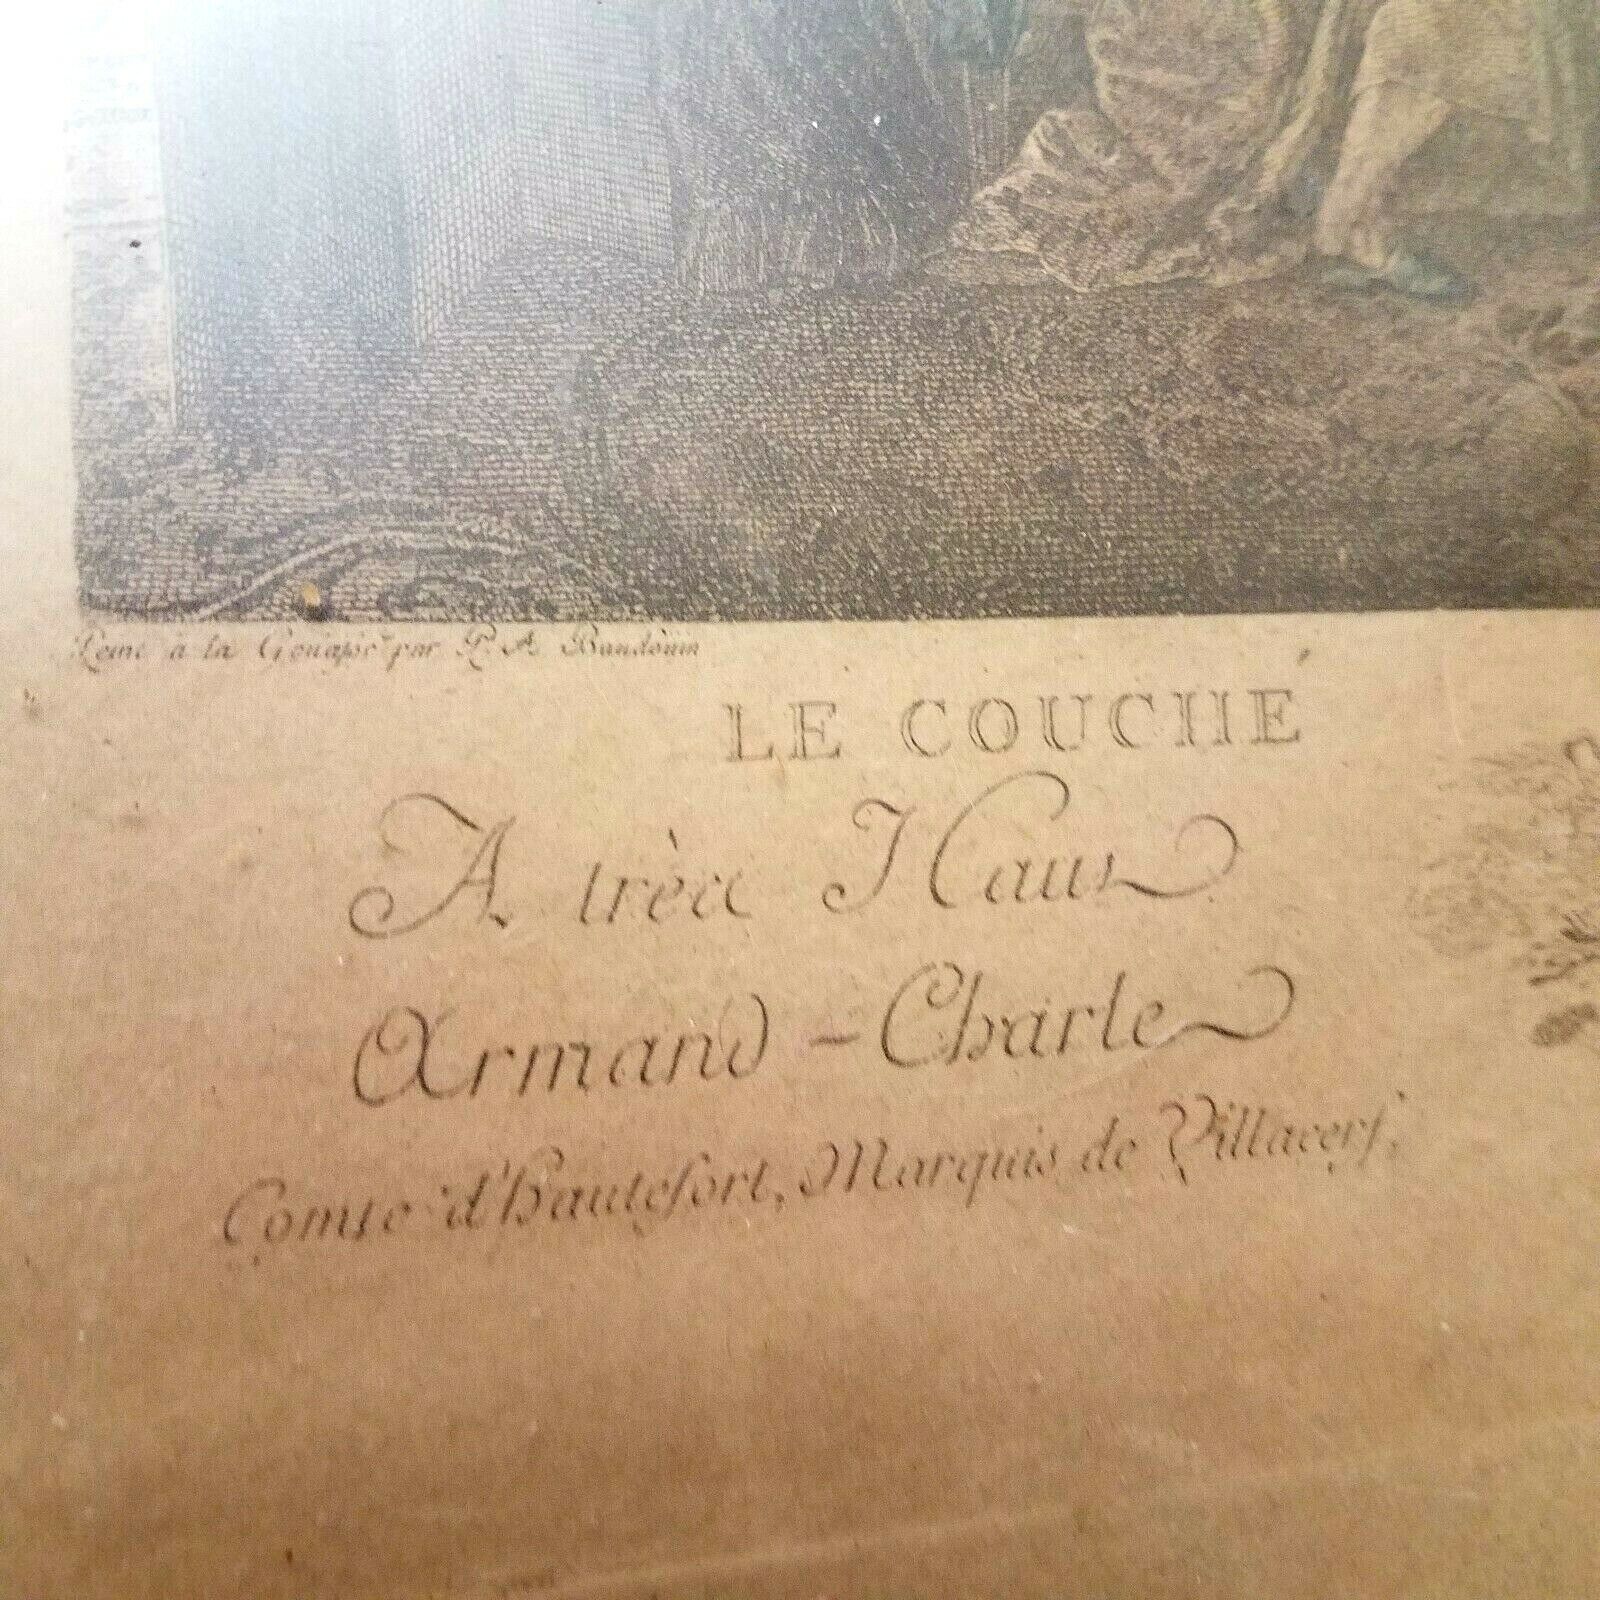 Peint à la Gouasse par P. A. Baudouin
LE COUCHÉ
A très Haut
Armand-Charle
Comte d'hautefort, Marquis de Villacerf,